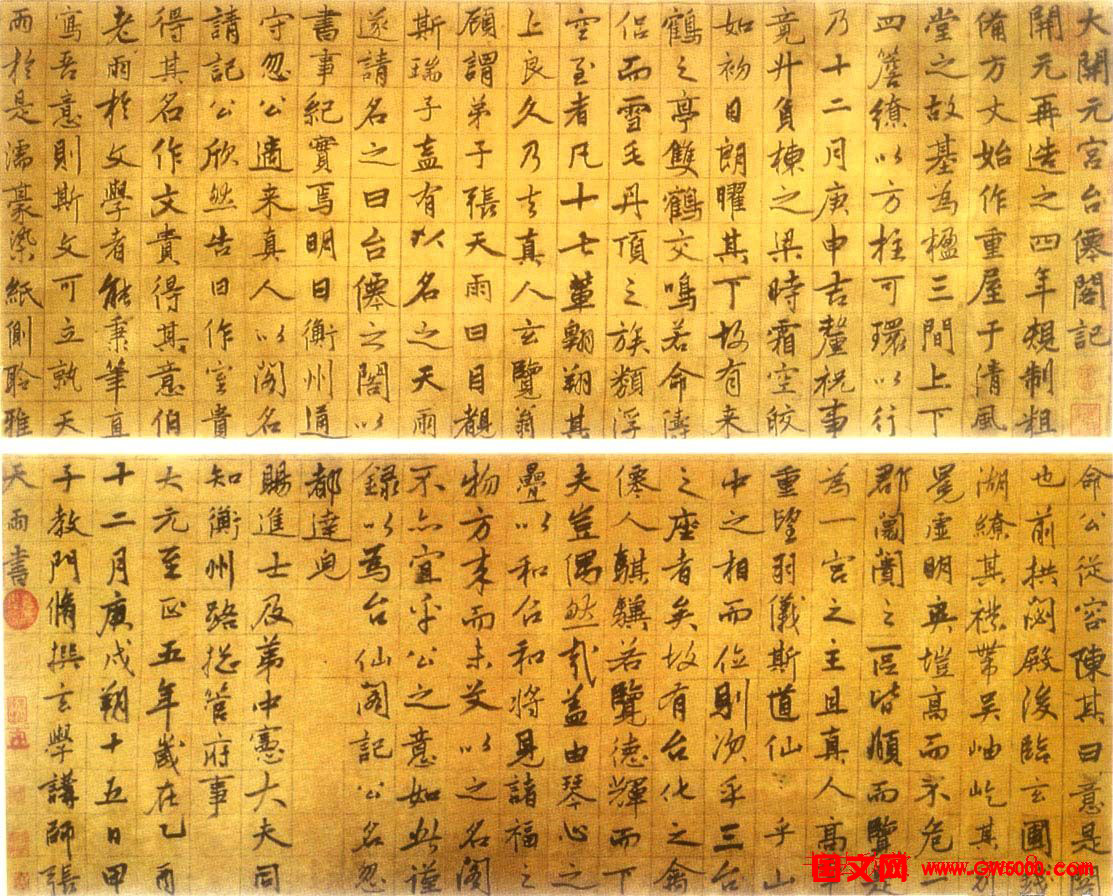 大開元宮台僊閣記
開元再造之四年規制粗
備方丈始作重屋于清風
堂之故基為楹三間上下
四簷繚以方柱可環以行
乃十二月庚申吉釐祝事
竟廾負棟之梁時霜空皎
如初日朗曜其下故有来
鶴之亭雙鶴交鳴若命儔
侣而雪毛丹頂之族類浮
空至者凡十七輩翱翔其
上良久乃去真人玄覽翁
顧謂弟子張天雨曰目覩
斯瑞子盍有以名之天雨
遂請名之曰台僊之閣以
書事紀實焉明日衡州通
守忽公適来真人以閣名
請記公欣然告曰作室貴
得其名作文貴得其意伯
老雨於文學者能秉筆直
寫吾意則斯文可立孰天
雨於是濡毫染紙側聆雅
命公從容陳其曰意是閣
也前拱閟殿後臨玄圃錢
湖繚其襟帶吳岫屹其
晃虛明爽塏高而不危
郡闤闠之區皆順而覽
為一宮之主且真人高
重望羽儀斯道仙乎山
中之相而位則次乎三台
之座者矣故有台化之禽
僊人騏驥若覽德輝而下
夫豈偶然哉蓋由琴心之
疊以和召和將見諸福之
物方来而未艾以之名閣
不亦宜乎公之意如此謹
錄以為台仙閣記公名忽
都達皃
賜進士及第中憲大夫同
知衡州路揔管府事
大元至正五年歲在乙酉
十二月庚戌朔十五日甲
子教門脩撰玄學講師張
天雨書
图文网 www.GW5000.com